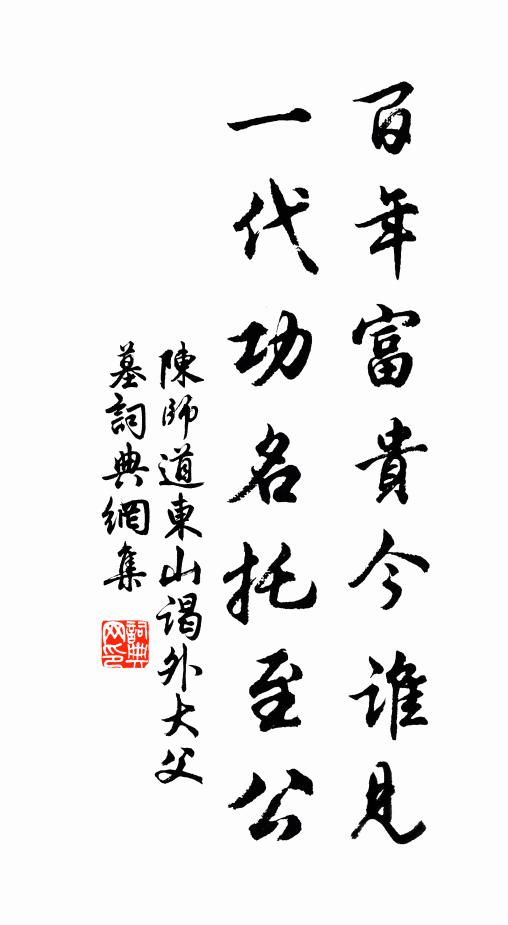 百年富貴今誰見
一代功名托至公
陳師道東山谒外大父
墓詞典網集
詞典網印